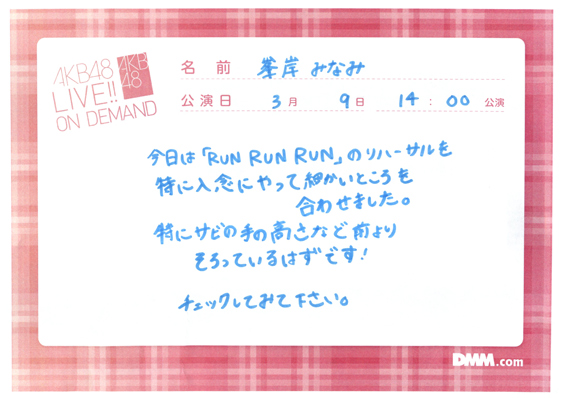 AKB48
LIVE!!
ON DEMAND
AKB
48
名 前 峯岸 みなみ
公演日 3月 9日 14:00 公演
今日は「RUN RUN RUN」のリハーサルを
特に入念にやって細かいところも
合わせました。
特にサビの手の高さなど前より
そろっているはずです!
チェックしてみて下さい。
DMM.com